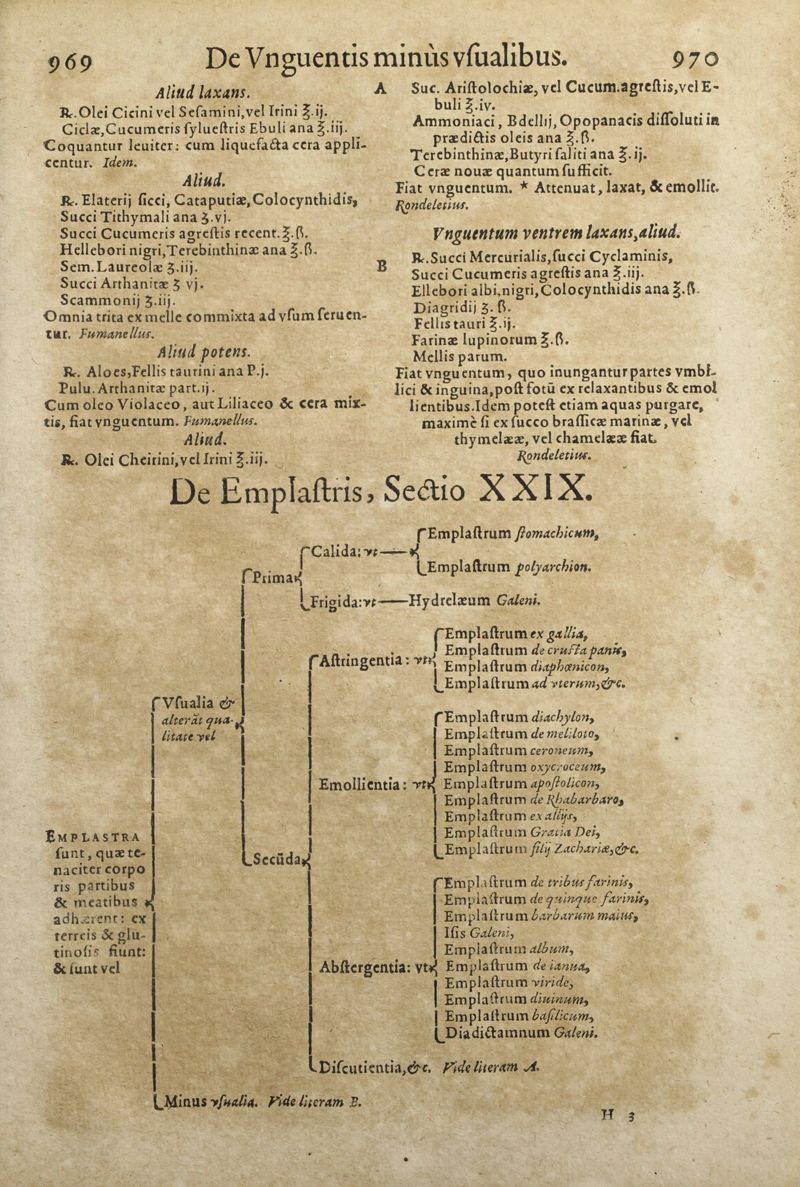 969
De Vnguentis minùs vſualibus.
970
Aliud laxans.
℞. Olei Cicini vel Seſamini, vel Irini ℥.ij.
Ciclæ, Cucumeris ſylueſtris Ebuli ana ℥.iij.
Coquantur leuiter: cum liquefacta cera appli-
centur. Idem.
Aliud.
℞. Elaterij ſicci, Cataputiæ, Colocynthidis,
Succi Tithymali ana ʒ.vj.
Succi Cucumeris agreſtis recent. ℥.ß.
Hellebori nigri, Terebinthinæ ana ℥.ß.
Sem. Laureolæ ʒ.iij.
Succi Arthanitæ ʒ vj.
Scammonij ʒ.iij.
Omnia trita ex melle commixta ad vſum ſeruen-
tur. Fumanellus.
Aliud potens.
℞. Aloes, Fellis taurini ana P.j.
Pulu. Arthanitæ part.ij.
Cum oleo Violaceo, aut Liliaceo & cera mix-
tis, fiat vnguentum. Fumanellus.
Aliud.
℞. Olei Cheirini, vel Irini ℥.iij.
A
Suc. Ariſtolochiæ, vel Cucum. agreſtis, vel E-
buli ℥.iv.
Ammoniaci, Bdellij, Opopanacis diſſoluti in
prædictis oleis ana ℥.ß.
Terebinthinæ, Butyri ſaliti ana ℥.ij.
Ceræ nouæ quantum ſufficit.
Fiat vnguentum. * Attenuat, laxat, & emollit.
Rondeletius.
Vnguentum ventrem laxans, aliud.
B
℞. Succi Mercurialis, ſucci Cyclaminis,
Succi Cucumeris agreſtis ana ℥.iij.
Ellebori albi. nigri, Colocynthidis ana ℥.ß.
Diagridij ʒ.ß.
Fellis tauri ℥.ij.
Farinæ lupinorum ℥.ß.
Mellis parum.
Fiat vnguentum, quo inunganturpartes vmbi-
lici & inguina, poſt fotū ex relaxantibus & emol
lientibus. Idem poteſt etiam aquas purgare,
maximè ſi ex ſucco braſſicæ marinæ, vel
thymelææ, vel chamelææ fiat.
Rondeletius.
De Emplaſtris, Sectio XXIX.
EMPLASTRA
ſunt, quæ te-
naciter corpo
ris partibus
& meatibus
adhærent: ex
terreis & glu-
tinoſis fiunt:
& ſunt vel
Vſualia &
alterāt qua-
litate vel
Prima
Calida: vt
Emplaſtrum ſtomachicum,
Emplaſtrum polyarchion.
Frigida: vt Hydrelæum Galeni.
Secūda
Aſtringentia: vt
Emplaſtrum ex gallia,
Emplaſtrum de cruſta panis,
Emplaſtrum diaphœnicon,
Emplaſtrum ad vterum, &c.
Emollientia: vt
Emplaſtrum diachylon,
Emplaſtrum de meliloto,
Emplaſtrum ceroneum,
Emplaſtrum oxycroceum,
Emplaſtrum apoſtolicon,
Emplaſtrum de Rhabarbaro,
Emplaſtrum ex allijs,
Emplaſtrum Gratia Dei,
Emplaſtrum filij Zachariæ, &c.
Abſtergentia: vt
Emplaſtrum de tribus farinis,
Emplaſtrum de quinque farinis,
Emplaſtrum barbarum maius,
Iſis Galeni,
Emplaſtrum album,
Emplaſtrum de ianua,
Emplaſtrum viride,
Emplaſtrum diuinum,
Emplaſtrum baſilicum,
Diadictamnum Galeni.
Diſcutientia, &c. Vide literam A.
Minus vſualia. Vide literam B.
H 3